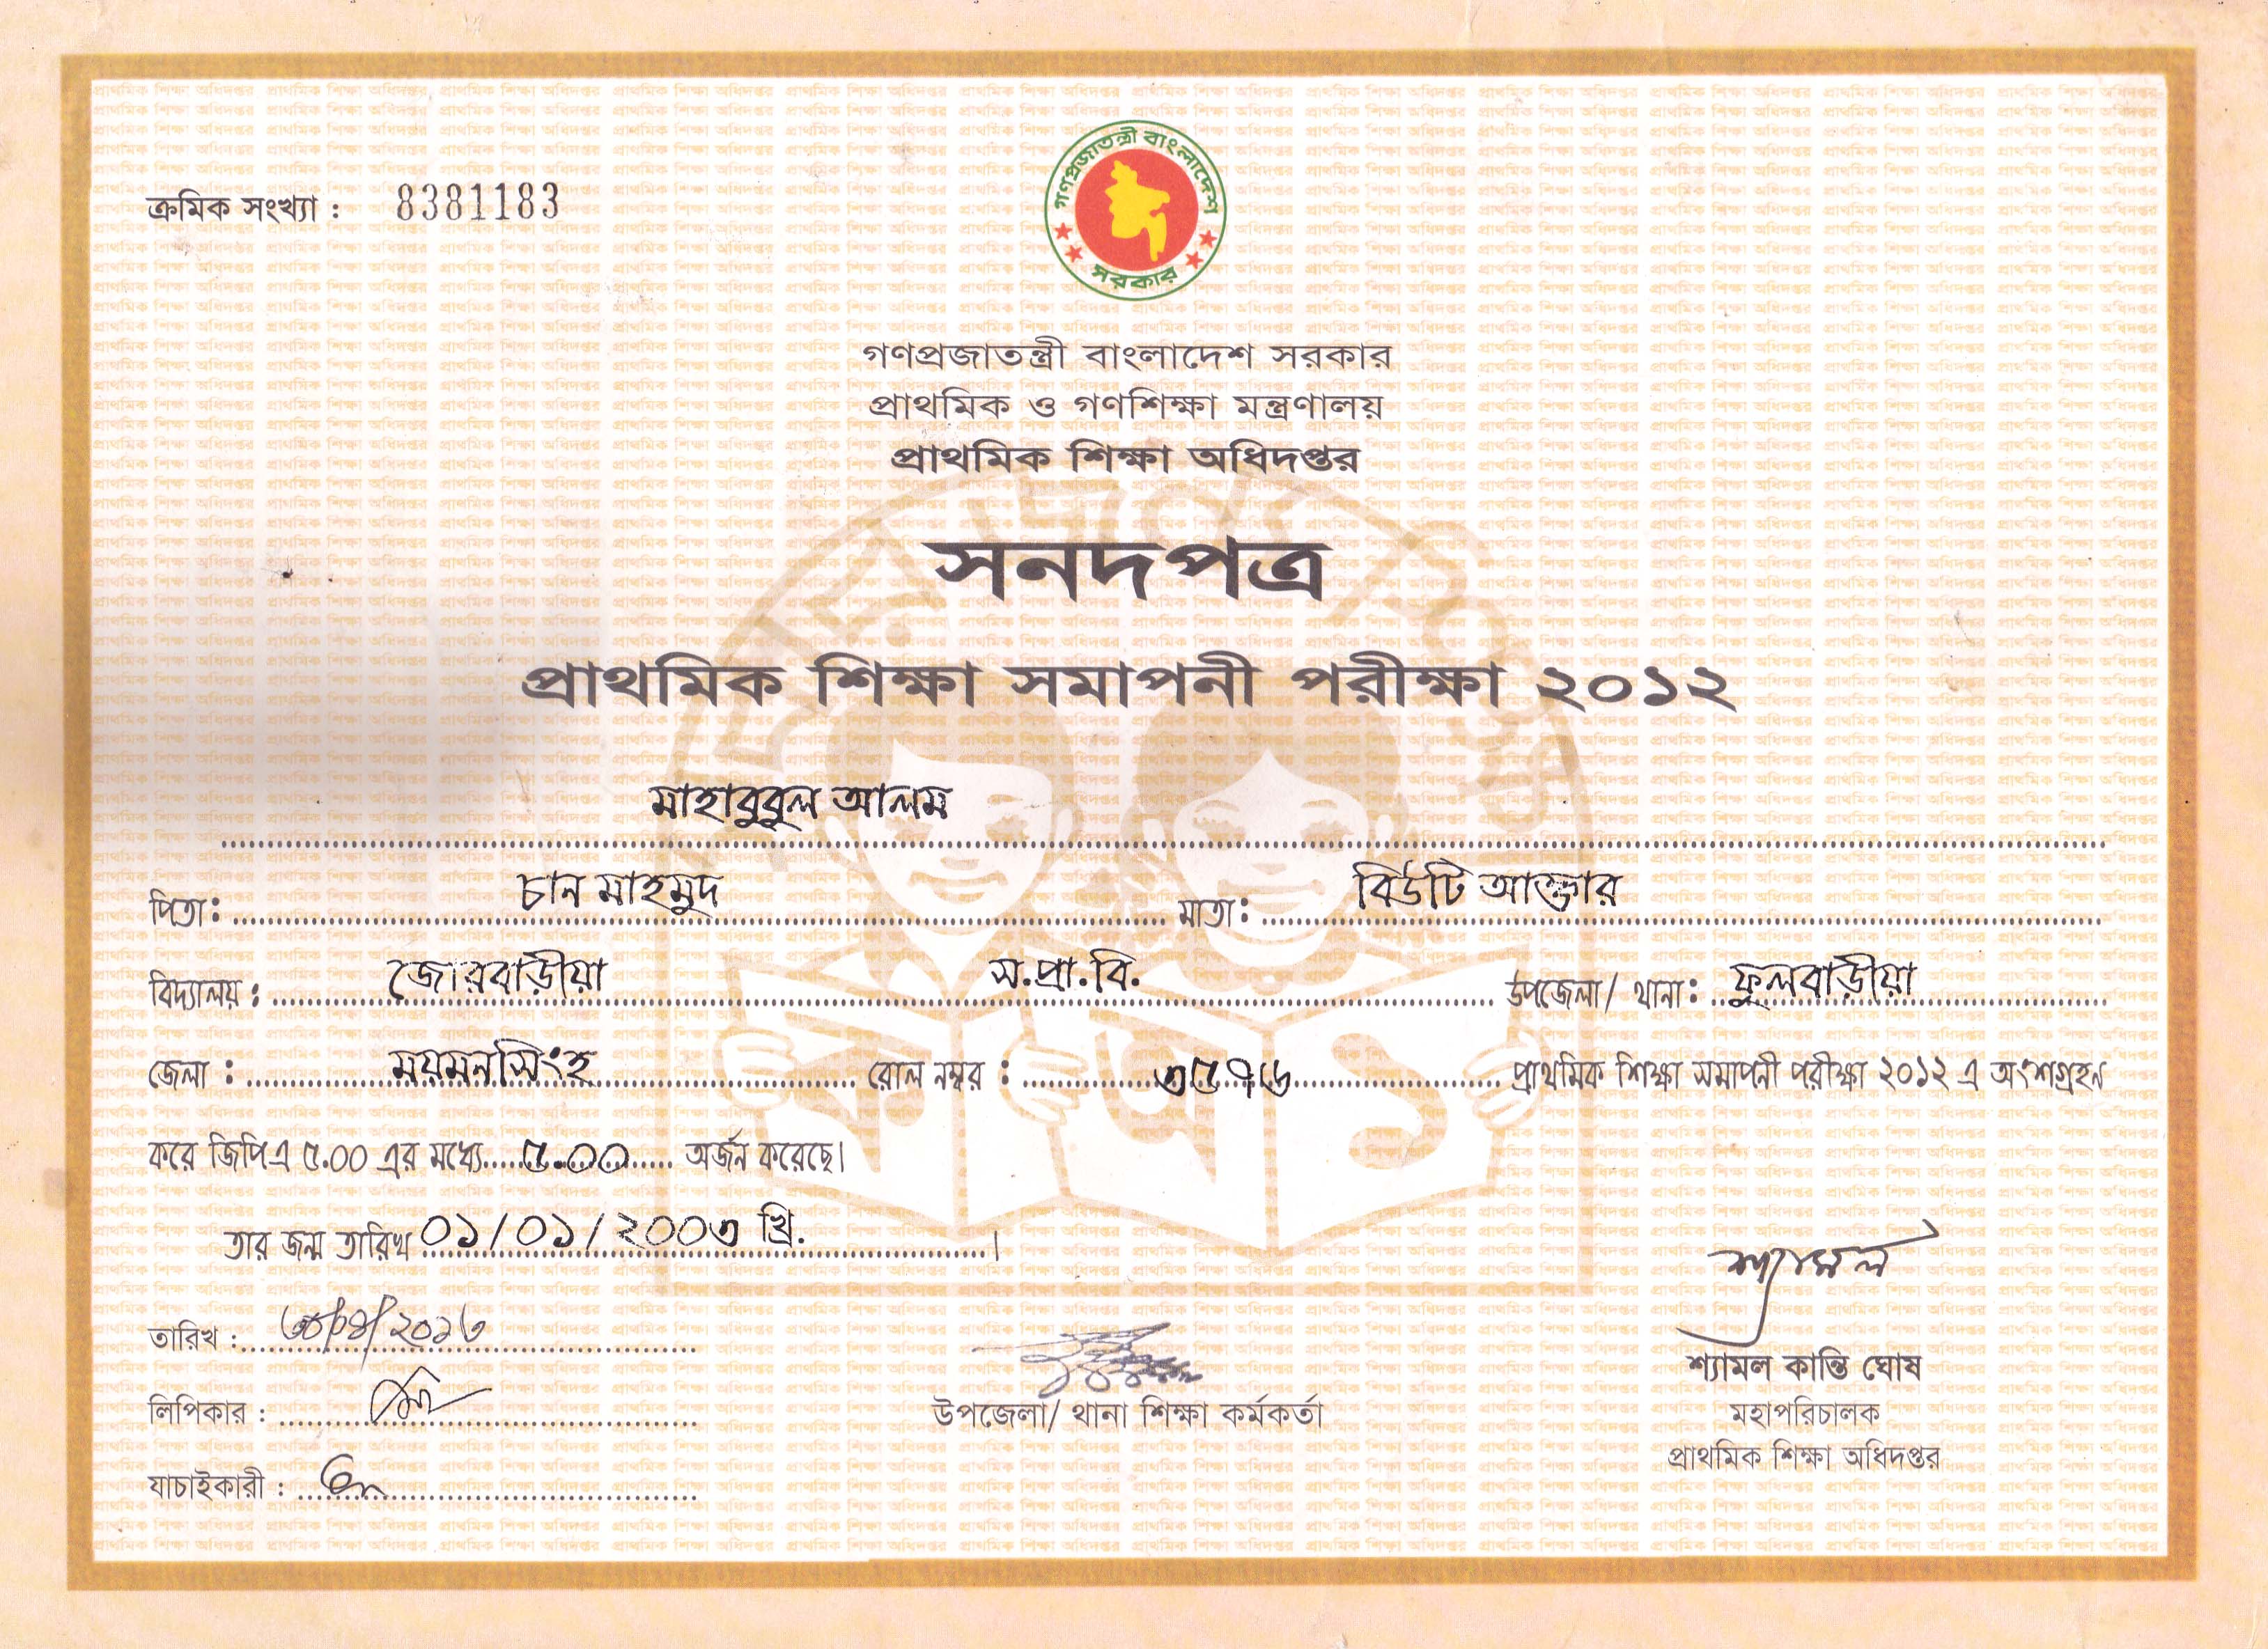 ক্রমিক সংখ্যা : 8381183
গণপ্রজাতন্ত্রী বাংলাদেশ
সরকার
গণপ্রজাতন্ত্রী বাংলাদেশ সরকার
প্রাথমিক ও গণশিক্ষা মন্ত্রণালয়
প্রাথমিক শিক্ষা অধিদপ্তর
সনদপত্র
প্রাথমিক শিক্ষা সমাপনী পরীক্ষা ২০১২
মাহাবুবুল আলম
পিতা: চান মাহমুদ মাতা: বিউটি আক্তার
বিদ্যালয় : জোরবাড়ীয়া স.প্রা.বি. উপজেলা/ থানা: ফুলবাড়ীয়া
জেলা : ময়মনসিংহ রোল নম্বর : ৩৫৭৬ প্রাথমিক শিক্ষা সমাপনী পরীক্ষা ২০১২ এ অংশগ্রহন
করে জিপিএ ৫.০০ এর মধ্যে ৫.০০ অর্জন করেছে।
তার জন্ম তারিখ ০১/০১/২০০৩ খ্রি. ।
শ্যামল
তারিখ :
শ্যামল কান্তি ঘোষ
লিপিকার : উপজেলা/ থানা শিক্ষা কর্মকর্তা মহাপরিচালক
প্রাথমিক শিক্ষা অধিদপ্তর
যাচাইকারী :